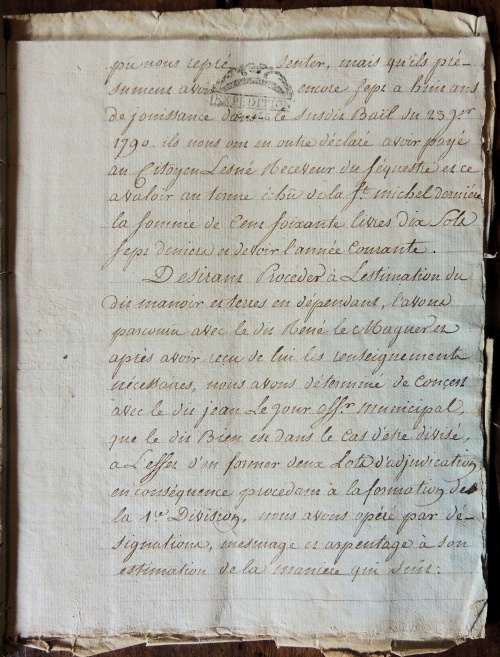 pu nous repré senter, mais qu'ils pré-
sument avoir encore sept à huit ans
EXPEDITION
de jouissance dans le susdit Bail du 23 9.bre
1790. ils nous ont en outre déclaré avoir payé
au Citoyen Lesné Receveur du séquestre et ce
a valoir au terme échu de la S.t michel dernière
la somme de Cent soixante livres dix Sols
sept deniers et devoir l'année Courante.
Desirant Procéder à L'estimation du
dit manoir et terres en dépendant, l'avons
parcouru avec le dit René le Maguer et
après avoir reçu de lui les renseignements
nécessaires, nous avons déterminé de Conçert
avec le dit jean Le jour off.r municipal,
que le dit Bien est dans le Cas d'être divisé,
a L'effet d'en former deux Lots d'adjudication,
en conséquence procédant à la formation de
la 1.re Division, nous avons opéré par dé-
signations, mesurage et arpentage à son
estimation de la manière qui suit: